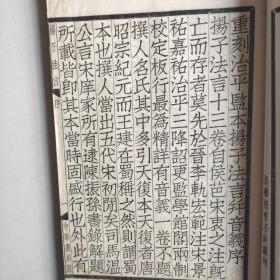 重刻治平監本揚子法言并音義序
揚子法言十三卷自侯芭宋衷之注既
亡而存者莫先於晉李軌宏範注宋景
祐嘉祐治平三降詔更監學館閣兩制
校定板行最爲精詳有音義一卷不題
撰人名氏其中多引天復本天復者唐
昭宗紀元而王建在蜀稱之然則謂蜀
本也撰人當出五代宋初閒矣司馬溫
公言宋庠家所有逮陳振孫書錄解題
所載皆卽其本當時固盛行也外此